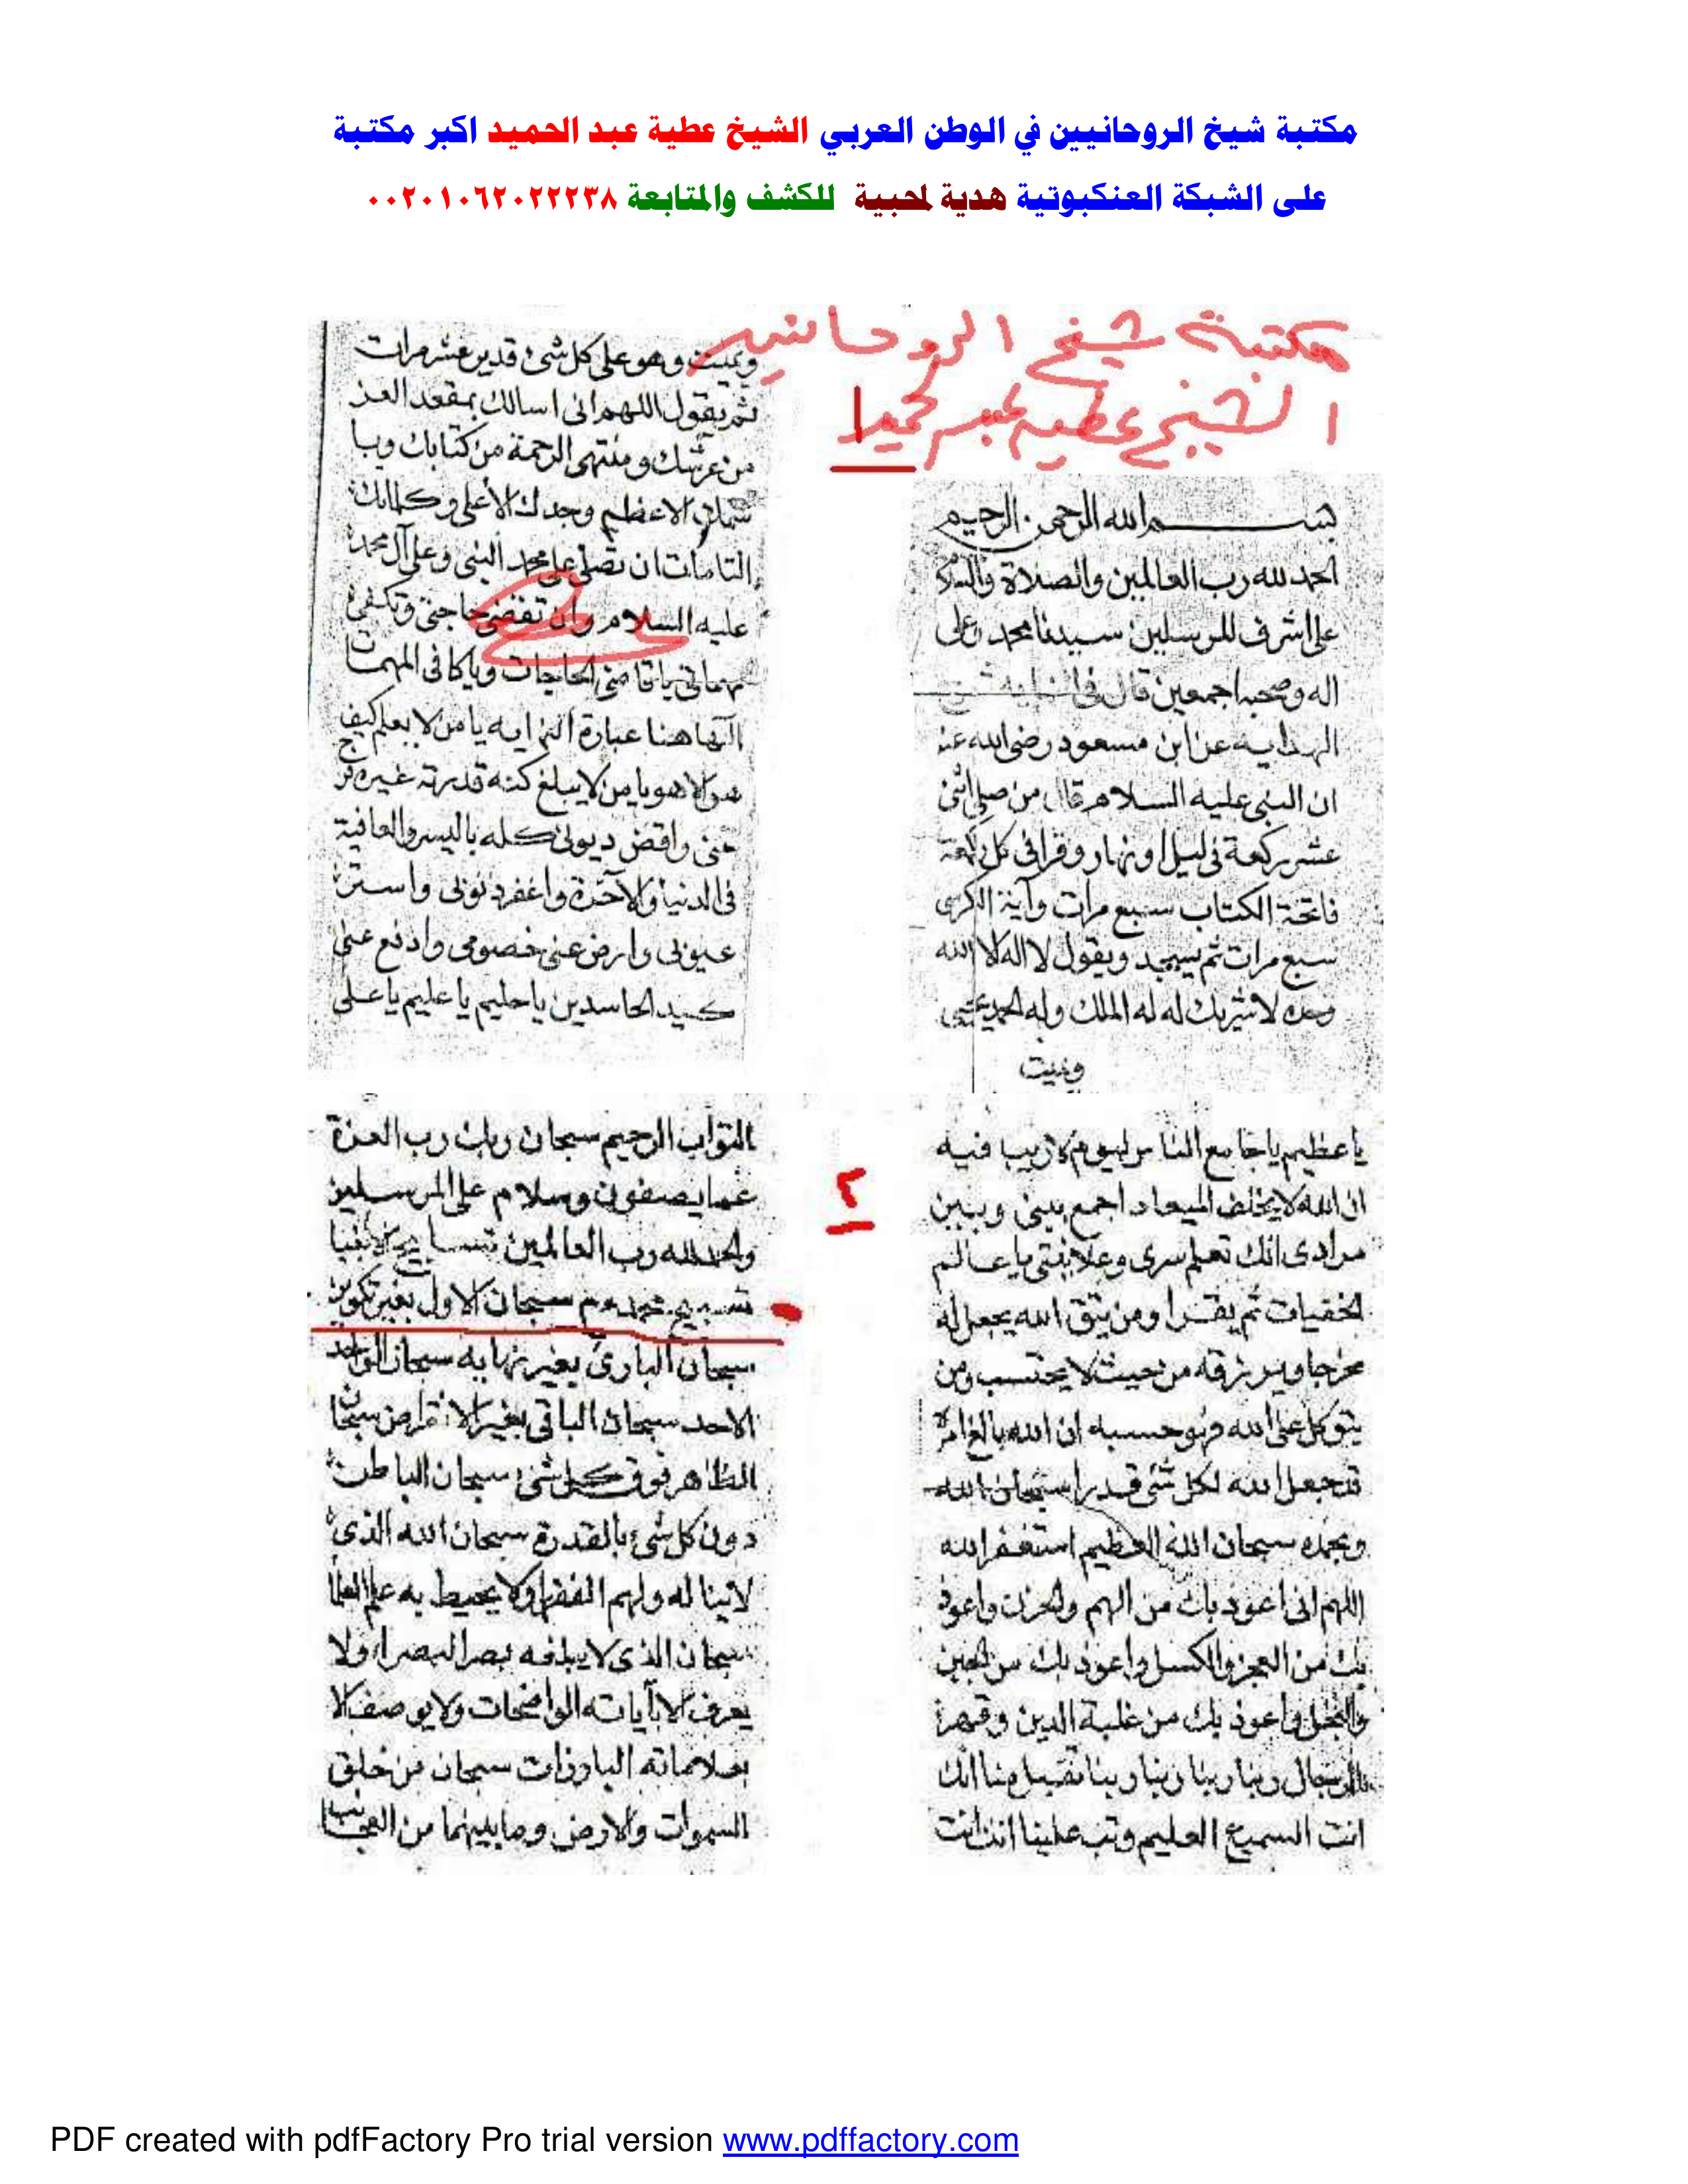 مكتبة شيخ الروحانيين في الوطن العربي الشيخ عطية عبد الحميد اكبر مكتبة
على الشبكة العنكبوتية هدية لمحبية للكشف والمتابعة ٠٠٢٠١٠٦٢٠٢٢٢٣٨
مكتبة شيخ الروحانيين
الشيخ عطيه عبد الحميد
١
بسم الله الرحمن الرحيم
الحمد لله رب العالمين والصلاة والسلام
على اشرف المرسلين سيدنا محمد وعلى
اله وصحبه اجمعين قال في
الهدايه عن ابن مسعود رضي الله عنه
ان النبي عليه السلام قال من صلى اثنى
عشر ركعة في ليل او نهار وقرا في كل ركعة
فاتحة الكتاب سبع مرات وآية الكرسى
سبع مرات ثم يسجد ويقول لا اله الا الله
وحده لا شريك له له الملك وله الحمد يحيى
ويميت
ويميت وهو على كل شئ قدير عشر مرات
ثم يقول اللهم انى اسالك بمقعد العز
من عرشك ومنتهى الرحمة من كتابك وبا
سمك الاعظم وجدك الأعلى وكلماتك
التامات ان تصلى على محمد النبى وعلى آل محمد
عليه السلام وان تقضى حاجتى وتكفى
مهماتى يا قاضى الحاجات ويا كافى المهمات
هنا عبارة يا من لا يعلم كيف
هو الا هو ويا من لا يبلغ كنه قدرته غيره فرج
عنى واقض ديونى كله باليسر والعافية
فى الدنيا والآخرة واغفر ذنوبى واستر
عيوبى وارض عنى خصومى وادفع عنى
كيد الحاسدين يا حليم يا عليم يا على
يا عظيم يا جامع الناس ليوم لا ريب فيه
ان الله لا يخلف الميعاد اجمع بينى وبين
مرادى انك تعلم سرى وعلانيتى يا عالم
الخفيات ثم يقرا ومن يتق الله يجعل له
مخرجا ويرزقه من حيث لا يحتسب ومن
يتوكل على الله فهو حسبه ان الله بالغ امره
قد جعل الله لكل شئ قدرا سبحان الله
وبحمده سبحان الله العظيم استغفر الله
اللهم انى اعوذ بك من الهم والحزن واعوذ
بك من العجز والكسل واعوذ بك من الجبن
والبخل واعوذ بك من غلبة الدين وقهر
الرجال وبنا ربنا ربنا ربنا تقبل منا انك
انت السميع العليم وتب علينا انك انت
٢
التواب الرحيم سبحان ربك رب العزة
عما يصفون وسلام على المرسلين
والحمد لله رب العالمين تسابيح الانبيا
تسبيح سبحان الاول بغير تكوين
سبحان البارئ بغير نهايه سبحان الواحد
الاحد سبحان الباقى بغير الانقراض سبحان
الظاهر فوق كل شئ سبحان الباطن
دون كل شئ بالقدرة سبحان الله الذى
لا ولا يحيط به علم العلما
سبحان الذى لا بصر البصراء ولا
يعرف الا بآياته الواضحات ولا يوصف الا
بعلاماته البارزات سبحان من خلق
السموات والارض وما بينهما من العجائب
PDF created with pdfFactory Pro trial version www.pdffactory.com